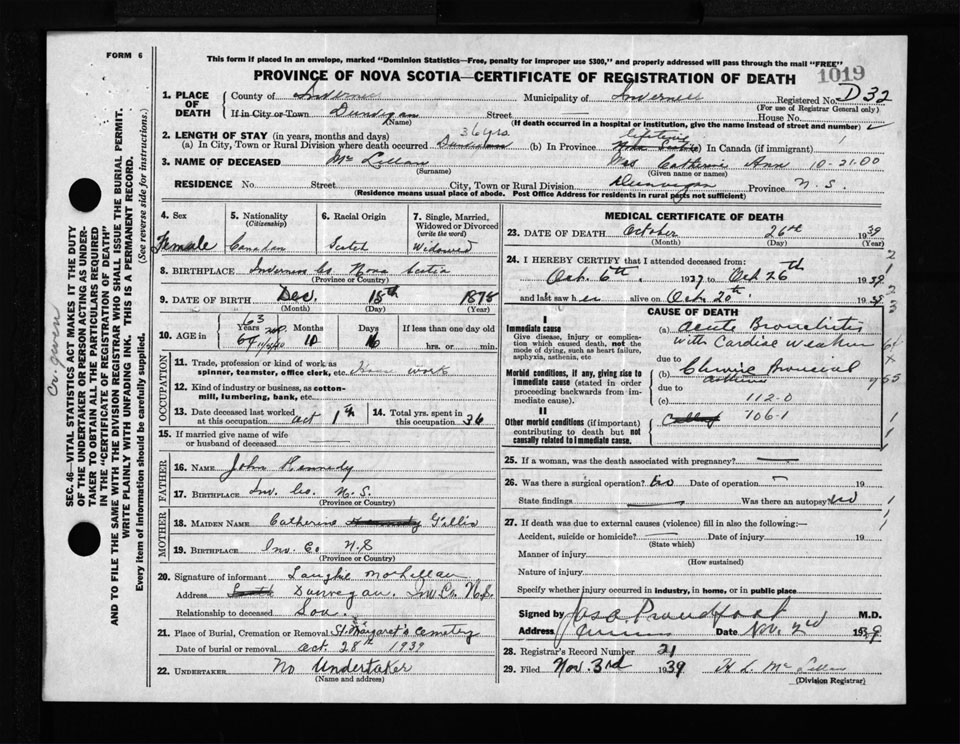 FORM 6
This form if placed in an envelope, marked "Dominion Statistics—Free, penalty for improper use $300," and properly addressed will pass through the mail "FREE"
PROVINCE OF NOVA SCOTIA—CERTIFICATE OF REGISTRATION OF DEATH
1019
1. PLACE OF DEATH
County of Inverness Municipality of Inverness Registered No. D32
(For use of Registrar General only)
If in City or Town Street House No.
(Name) (If death occurred in a hospital or institution, give the name instead of street and number)
2. LENGTH OF STAY (in years, months and days)
(a) In City, Town or Rural Division where death occurred 36 yrs. (b) In Province lifetime (c) In Canada (if immigrant)
3. NAME OF DECEASED McLellan Mrs Catherine Ann 10-21-00
(Surname) (Given name or names)
RESIDENCE No. Street City, Town or Rural Division Dunvegan Province N.S.
(Residence means usual place of abode. Post Office Address for residents in rural parts not sufficient)
4. Sex
Female
5. Nationality
(Citizenship)
Canadian
6. Racial Origin
Scotch
7. Single, Married, Widowed or Divorced
(write the word)
Widowed
8. BIRTHPLACE Inverness Co Nova Scotia
(Province or Country)
9. DATE OF BIRTH Dec. 18th 1875
(Month) (Day) (Year)
10. AGE in
Years Months Days If less than one day
63
64 10 hrs. or min.
OCCUPATION
11. Trade, profession or kind of work as
spinner, teamster, office clerk, etc. House work
12. Kind of industry or business, as cotton-
mill, lumbering, bank, etc.
13. Date deceased last worked
at this occupation Oct 1th
14. Total yrs. spent in
this occupation 36
15. If married give name of wife
or husband of deceased
FATHER
16. NAME John Kennedy
17. BIRTHPLACE Inv. Co. N.S.
(Province or Country)
MOTHER
18. MAIDEN NAME Catherine Kennedy Gillis
19. BIRTHPLACE Inv. Co N.S
(Province or Country)
20. Signature of informant Laughie McLellan
Address Dunvegan. Inv. Co. N.S.
Relationship to deceased Son.
21. Place of Burial, Cremation or Removal St. Margaret's Cemetery
Date of burial or removal Oct. 28th 1939
22. UNDERTAKER No Undertaker
(Name and address)
MEDICAL CERTIFICATE OF DEATH
23. DATE OF DEATH October 26th 1939
(Month) (Day) (Year)
24. I HEREBY CERTIFY that I attended deceased from:
Oct. 6th, 1939 to Oct 26th 1939
and last saw her alive on Oct. 20th 1939
CAUSE OF DEATH
I
Immediate cause
Give disease, injury or complica-
tion which caused death, not the
mode of dying, such as heart failure,
asphyxia, asthenia, etc
(a) Acute Bronchitis
with Cardiac Weakness
due to
Morbid conditions, if any, giving rise to
immediate cause (stated in order
proceeding backwards from im-
mediate cause).
(b) Chronic Bronchial
asthma
due to
(c) 112-0
106-1
II
Other morbid conditions (if important)
contributing to death but not
causally related to immediate cause.
25. If a woman, was the death associated with pregnancy?
26. Was there a surgical operation? No Date of operation
State findings Was there an autopsy? No
27. If death was due to external causes (violence) fill in also the following:—
Accident, suicide or homicide? Date of injury 19
(State which)
Manner of injury
(How sustained)
Nature of injury
Specify whether injury occurred in industry, in home, or in public place
Signed by Jas. Proudfoot M.D.
Address Inverness Date Nov. 2nd 1939
28. Registrar's Record Number 21
29. Filed Nov. 3rd 1939 H L McLellan
(Division Registrar)
SEC. 46—VITAL STATISTICS ACT MAKES IT THE DUTY
OF THE UNDERTAKER OR PERSON ACTING AS UNDER-
TAKER TO OBTAIN ALL THE PARTICULARS REQUIRED
IN THE "CERTIFICATE OF REGISTRATION OF DEATH"
AND TO FILE THE SAME WITH THE DIVISION REGISTRAR WHO SHALL ISSUE THE BURIAL PERMIT.
WRITE PLAINLY WITH UNFADING INK. THIS IS A PERMANENT RECORD.
Every item of information should be carefully supplied. (See reverse side for instructions.)